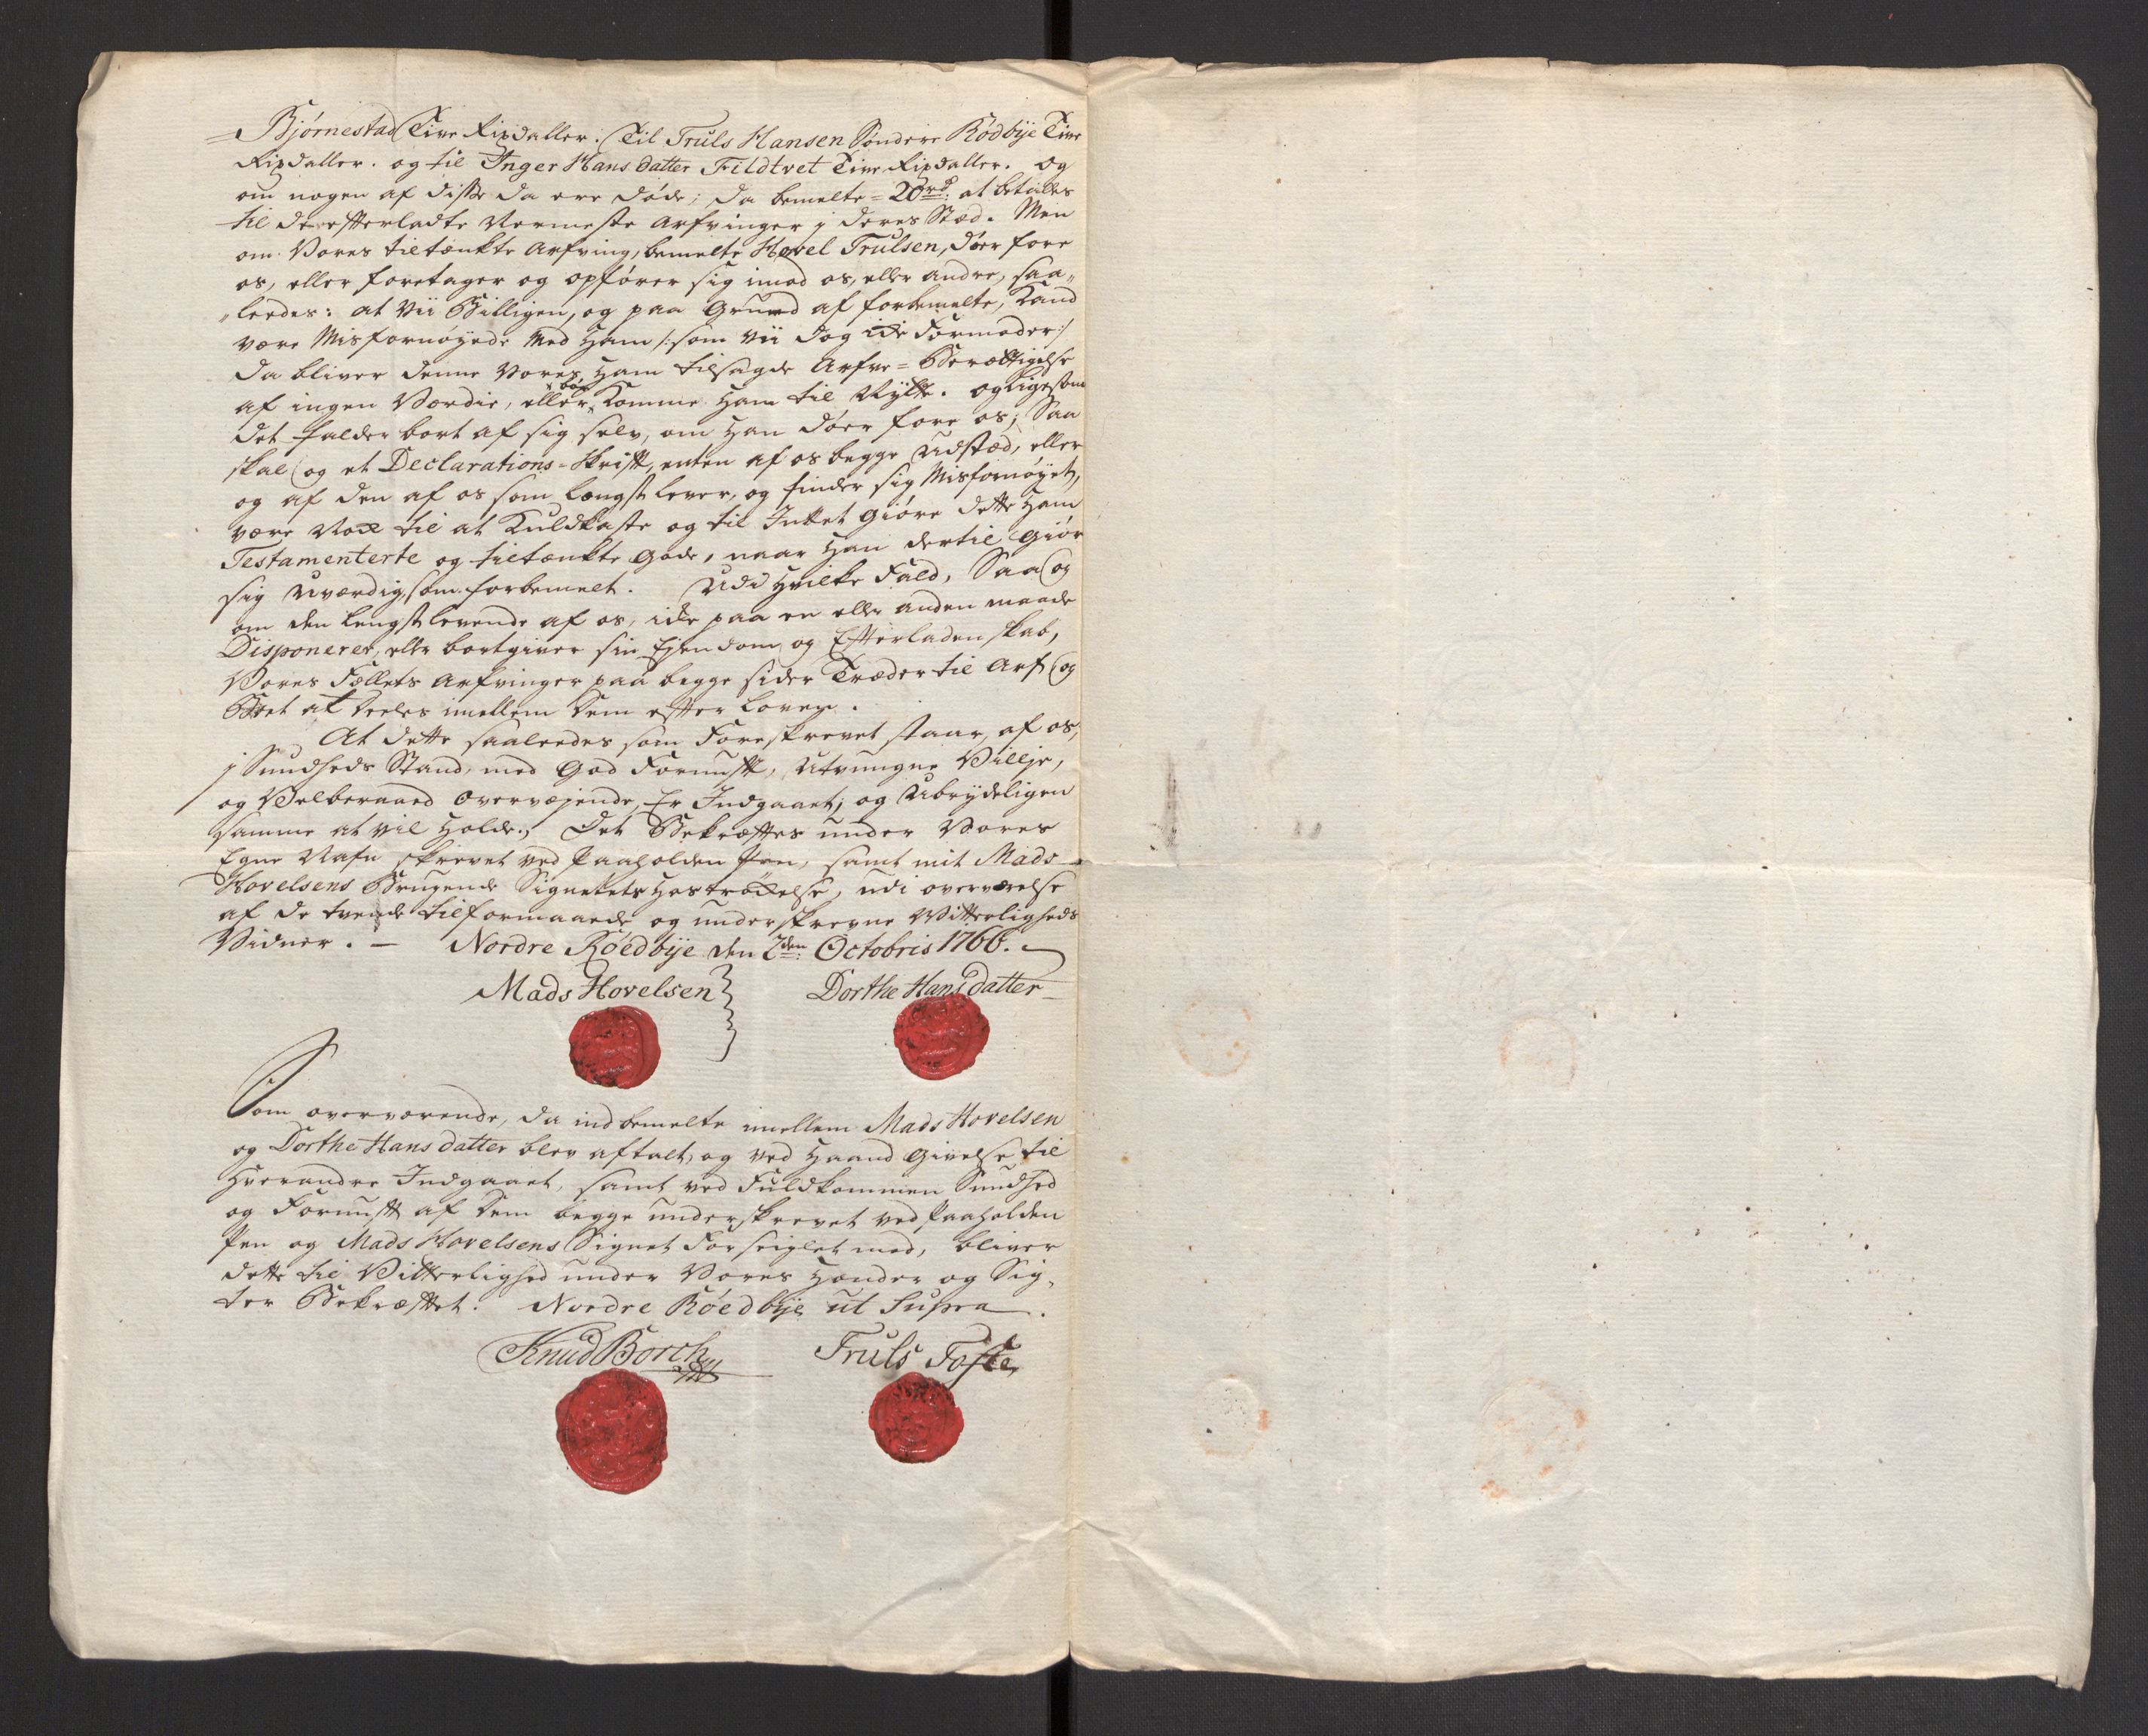 = Bjørnestad Tive Rixdaller. Til Truls Hansen Søndere Rödbÿe Tive
Rixdaller. og til Inger Hans datter Fildtvet Tive Rixdaller. og
om nogen af disse da ere døde; da bemelte = 20rd: at betales
til de efterladte Nermeste Arfvinger i deres Stæd. Men
om Vores tiltænkte Arfving, bemelte Hovel Trulsen, døer fore
os, eller foretager og opfører sig imod os, eller andre, saa„
„leedes: at vii Billigen, og paa Grund af forbemelte, Kand
være Misfornøyede med Ham /: som vii dog icke Formoder:/
da bliver denne Vores Ham tilsagde Arfve = Berættigelse
af ingen Værdie, eller bør Komme Ham til Nytte. og Ligesom
det falder bort af sig selv, om Han døer fore os; Saa
skal og et Declarations-Skrift, enten af os begge Udstæd, eller
og af den af os som længst lever, og finder sig Misfornøyet,
være Nok til at Kuldkaste og til Intet Giøre dette Ham
Testamenterte og tiltænkte Gode, naar Han dertil Giør
sig Uværdig, som forbemelt. Udi Hvilke Fald, Saa og
om den Lengstlevende af os, icke paa en eller anden maade
Disponerer, eller bortgiver sin Ejendom og Efterladenskab,
Vores Fællets Arfvinger paa begge sider Træder til Arf og
Boet at Deeles imellem dem efter Loven.
At dette saaleedes som Foreskrevet staar, af os,
i Sundheds Stand, med God Fornuft, Utvungne Villje,
og Velberaaed Overvejende, Er Indgaaet, og Ubrydeligen
samme at vil Holde., Det Bekræftes under Vores
Egne Nafn skrevet ved Paaholden Pen, samt mit Mads
Hovelsens Brugende Signetets Hostrøckelse, udi overværelse
af de tvende tilformaaede og underskrevne Vitterligheds
Vidner. — Nordre Röedbÿe den 2den Octobris 1766.
Mads Hovelsen Dorthe Hans datter
Som overværende, da indbemelte imellem Mads Hovelsen
og Dorthe Hans datter blev aftalt, og ved Haand Givelse til
Hverandre Indgaaet, samt ved Fuldkommen Sundhed
og Fornuft af dem begge underskrevet ved Paaholden
Pen og Mads Hovelsens Signet Forseiglet med, bliver
dette til Vitterlighed under Vores Hænder og Sig„
ter Bekræftet. Nordre Röedbÿe ut Supra.
Knud Borch Truls Foste